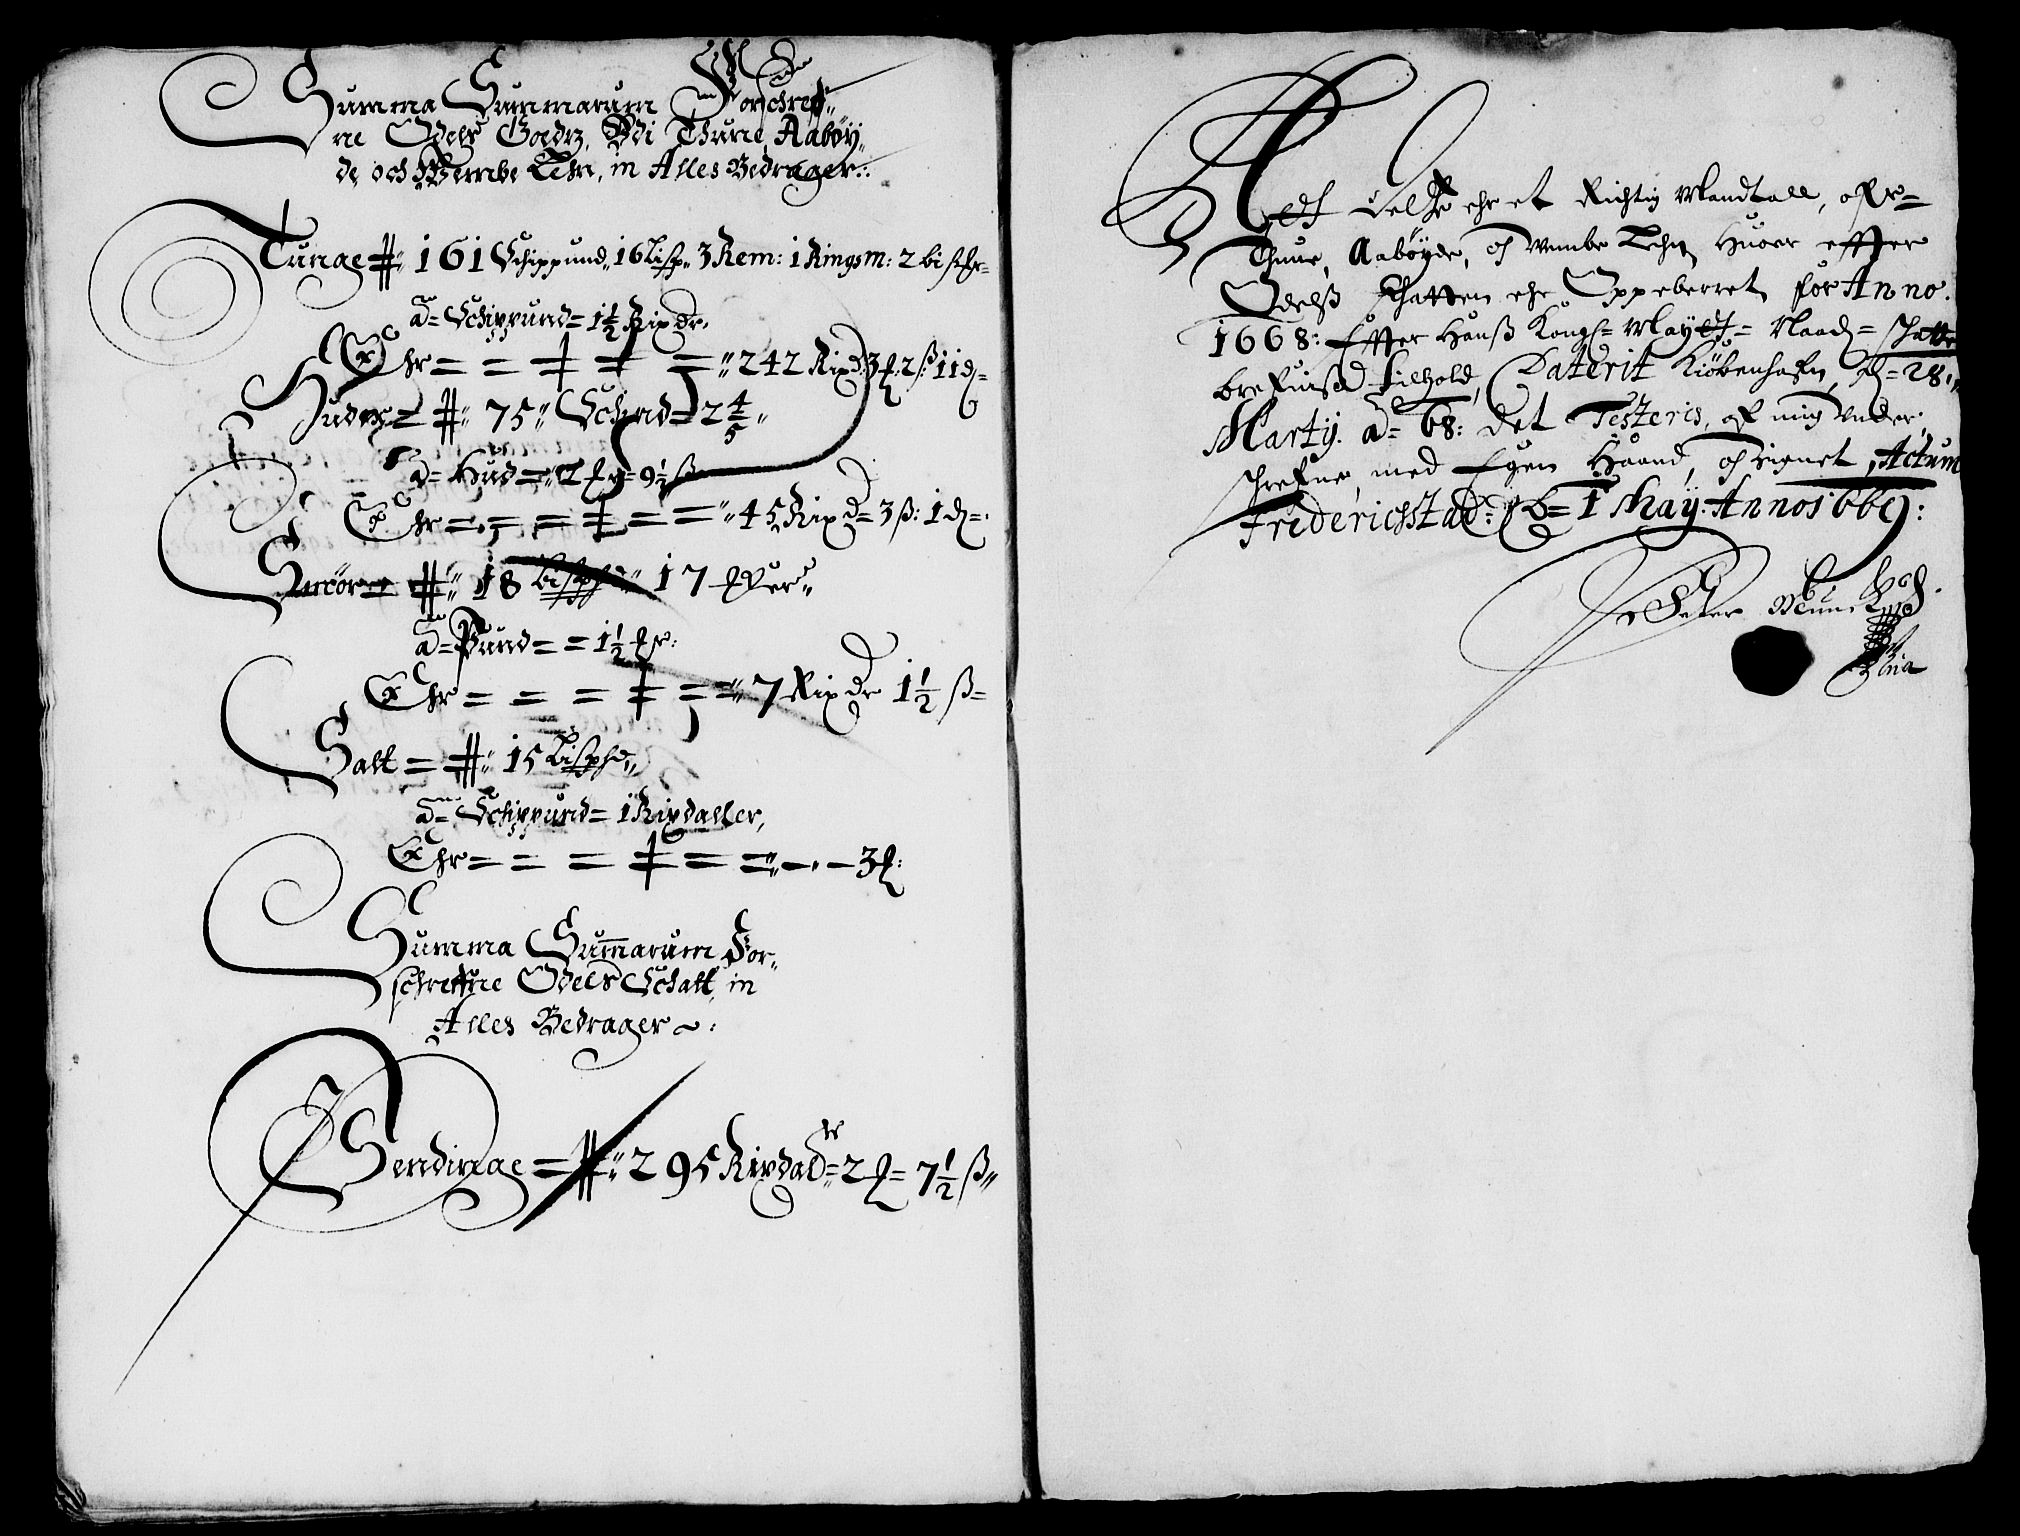 Summa Summarum Forschreff-
ne Odels Goedtz, Vdi Thune, Aabøy-
de, och Wembe Lehn, in Alles Bedrager:.
Tunge # 161 Schippund, 16 Lisp. 3 Rem: 1 Ringsm: 2 bisch:
a= Schippund = 1½ Rix dr.
Ehr = = = = = 242 Rixd: 3 f: 2 ß: 11 d=
Huder = # 75 Schind = 2 4/5
a= Hud = 2 f = 9½ ß
Ehr = = = = = = 45 Rix d= 3 ß: 1 d=
Smør # 18 bisphd 17
a= Pund = = 1½
Ehr = = = = = = 7 Rix dr 1½ ß=
Salt = # 15 Lisphd
a= Schippund = 1 Rixdaller,
Ehr = = = = = = - - 3 f:
Summa Summarum For-
schreffne Odels Schatt, in
Alles Bedrager
Pendinge = # 295 Rixdalr = 2 f = 7½ ß
At dette ehr et Richtig Mandtall, offr=
Thune, Aabøyde, och Wembe Lehn, Huor effter
Odelß schatten ehr Oppeberret for Anno.
1668: Effter Hanß Kongl= Mayest= Naad= schatte
brefuiß Jnhold, Daterit Kiøbenhafn, d= 28.
Marty. a= 68: det Testeris, af mig vnder:
schrefne, med Egen Haand, och signet, Actum
Friderichstad: d= 1 May. Anno 1669:
Peter